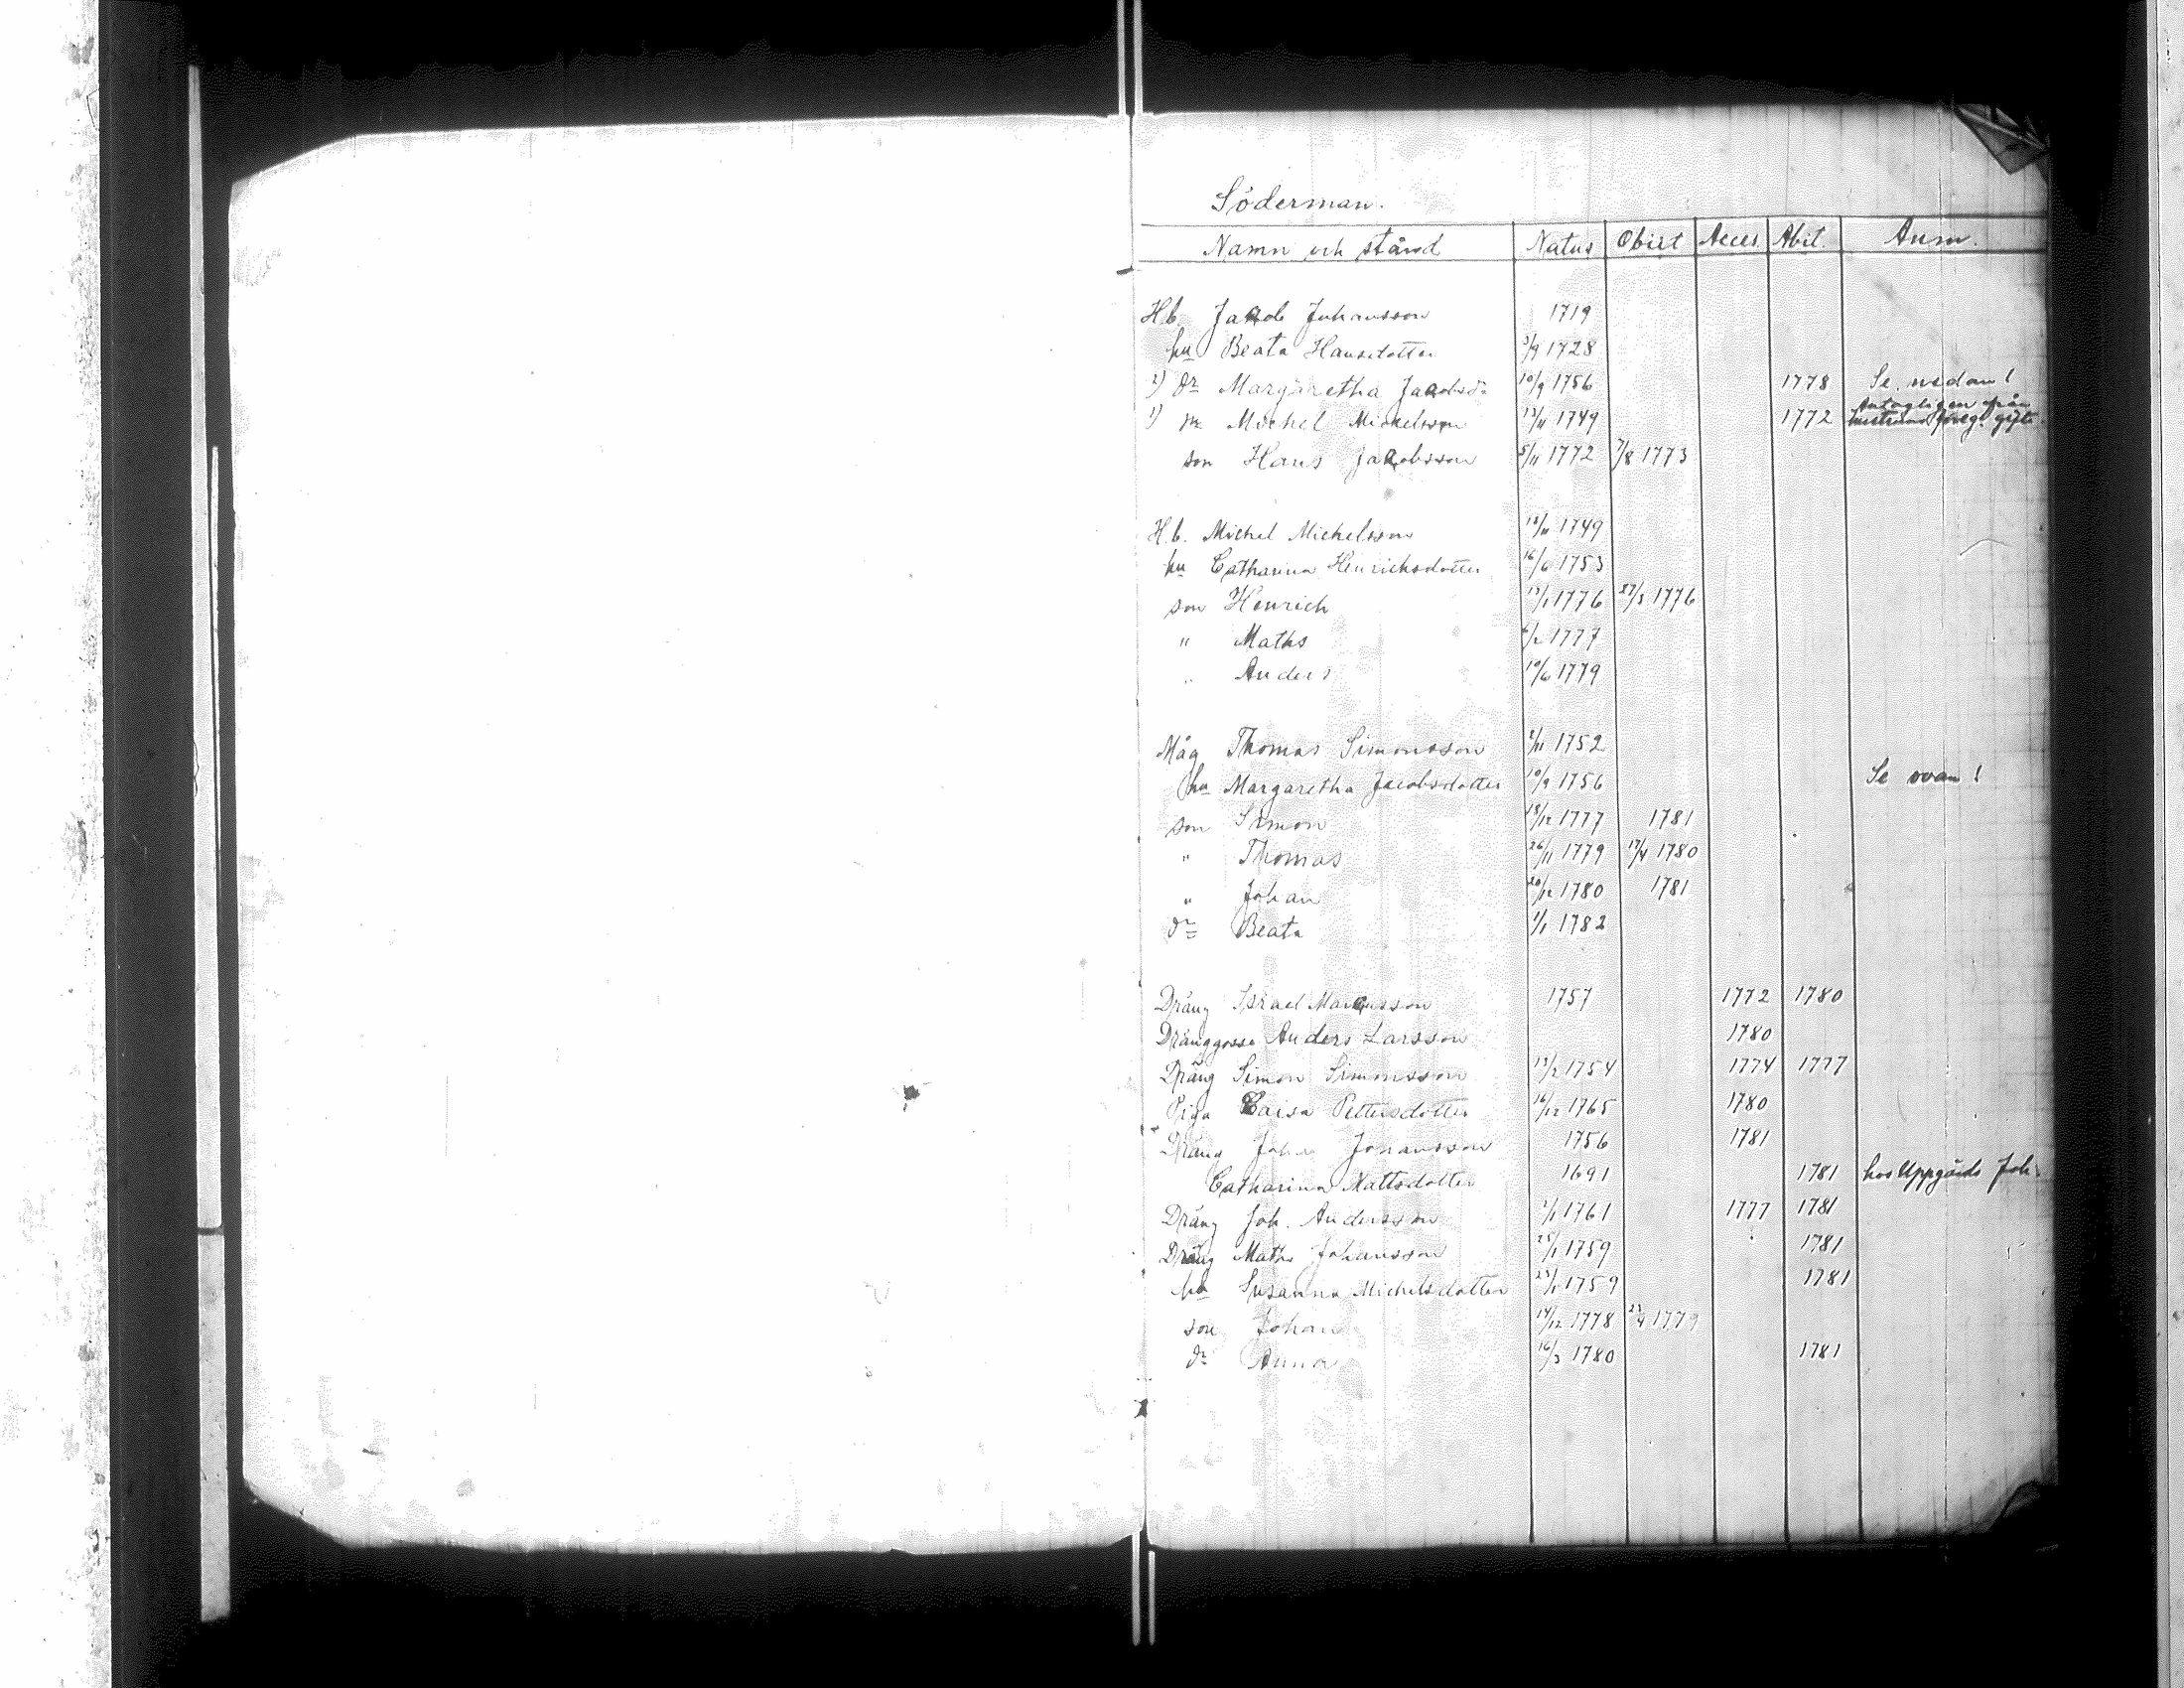 Söderman.
Namn och stånd Natus Obiit Acces. Abit. Anm.
H.b. Jacob Johansson 1719
hu Beata Hansdotter 3/9 1728
2) dr Margaretha Jacobsdr 10/9 1756 1778 Se nedan!
Antagligen från
1) Michel Michelsson 13/11 1749 1772 hustruns föreg. gifte.
son Hans Jacobsson 5/11 1772 7/8 1773
H.b. Michel Michelsson 13/11 1749
hu Catharina Henrichsdotter 16/6 1753
son Henrich 13/1 1776 27/3 1776
" Maths 1777
" Anders 10/6 1779
Måg Thomas Simonsson 2/11 1752
hu Margaretha Jacobsdotter 10/9 1756 Se ovan!
son Simon 18/12 1777 1781
" Thomas 26/11 1779 17/4 1780
" Johan 20/12 1780 1781
dr Beata 1/1 1782
Dräng Israel Marcusson 1757 1772 1780
Dränggosse Anders Larsson 1780
Dräng Simon Simonsson 13/2 1754 1774 1777
Piga Caisa Pettersdotter 16/12 1765 1780
Dräng Johan Johansson 1756 1781
Catharina Mattsdotter 1691 1781 hos Uppgårds Joh.
Dräng Joh. Andersson 1/1 1761 1777 1781
Dräng Maths Johansson 25/1 1759 1781
hu Susanna Michelsdotter 23/1 1759 1781
son Johan 14/12 1778 23/4 1779
dr Anna 16/3 1780 1781